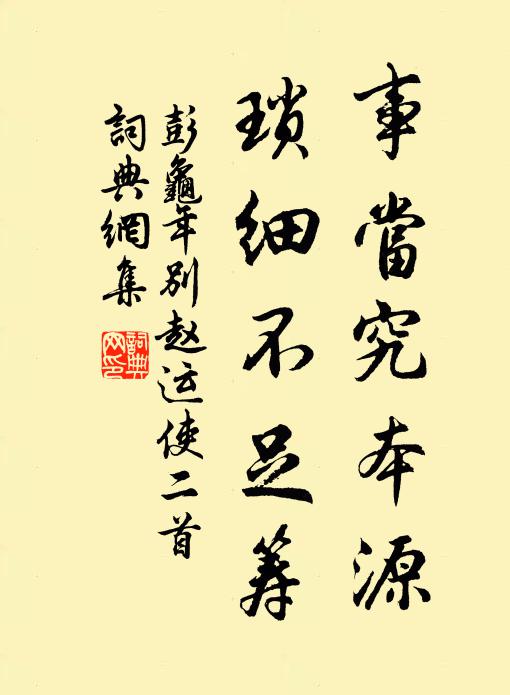 事當究本源
瑣細不足筹
彭龜年别赵运使二首
詞典網集
詞典網印